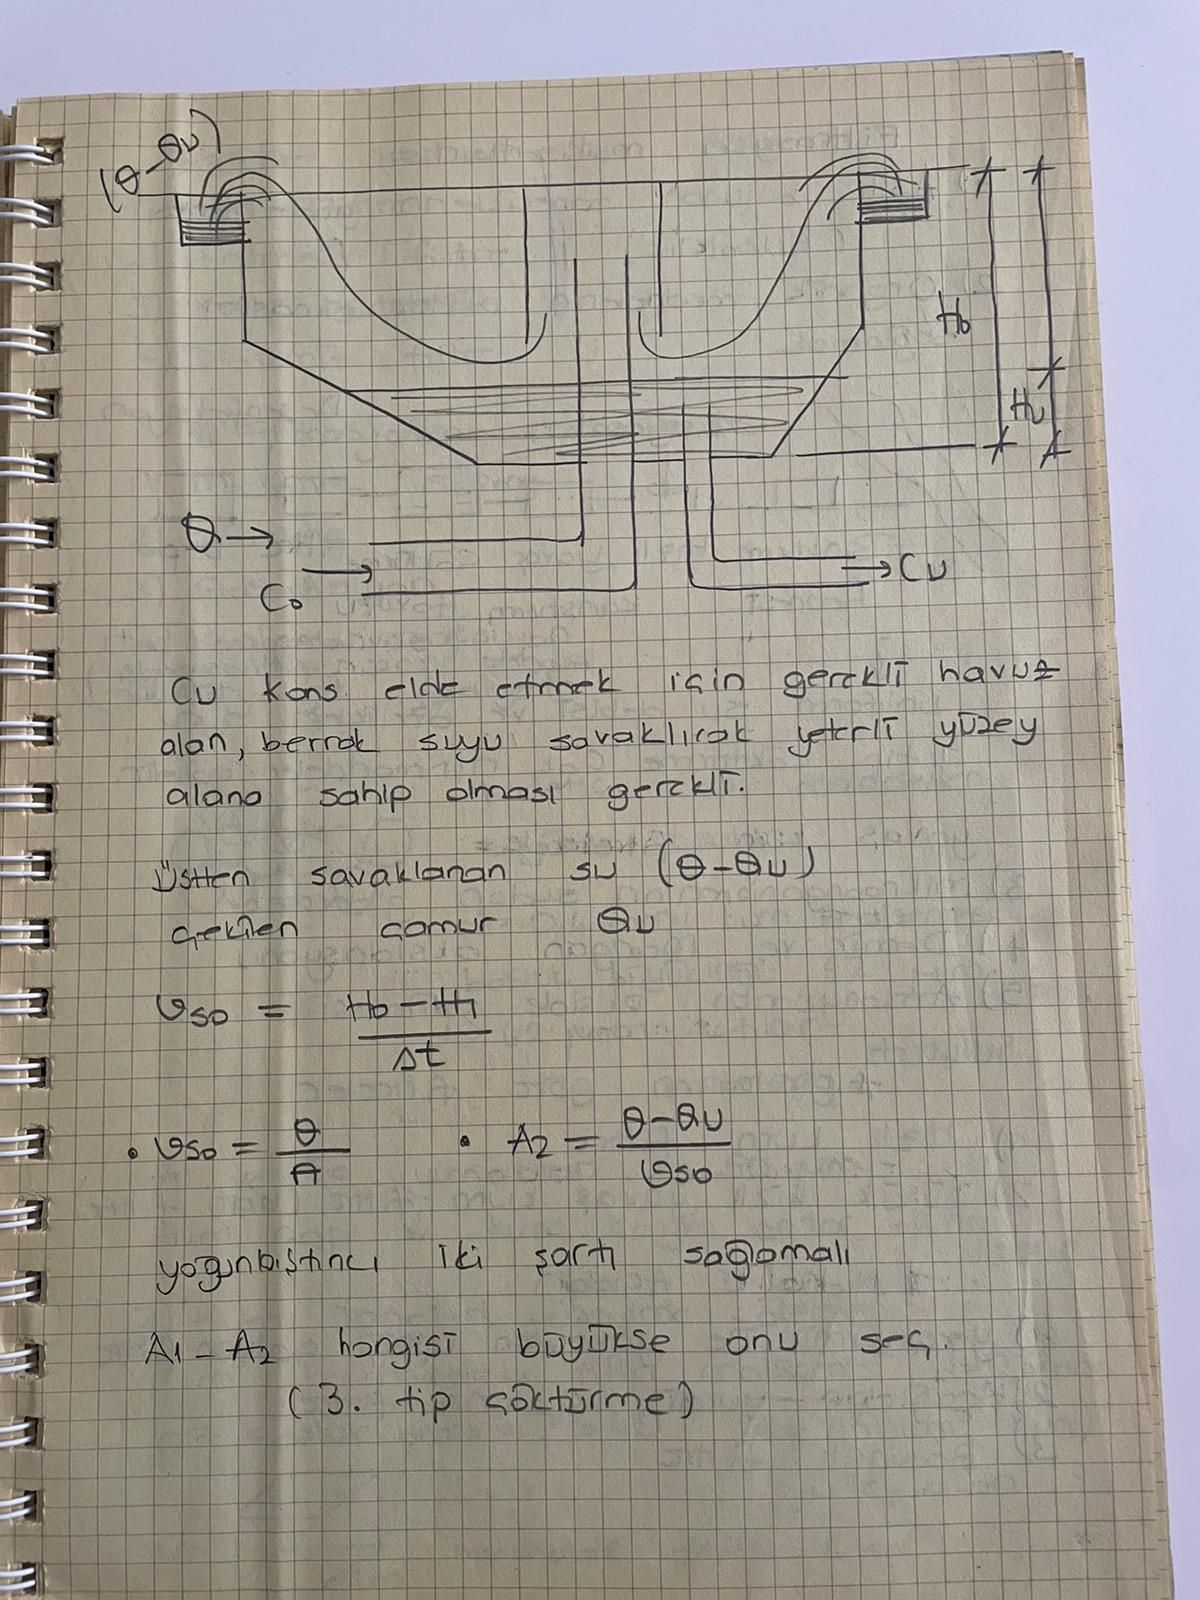 (Q-Qu)
H₀
Hu
Q →
C₀
→ Cu
Cu kons elde etmek için gerekli havuz
alan, berrak suyu savaklıcak yeterli yüzey
alana sahip olması gerekli.
Üstten savaklanan su (Q-Qu)
çekilen çamur Qu
υso = H₀ - H₁ / Δt
• υso = Q / A • A₂ = Q-Qu / υso
yoğunlaştırıcı iki şartı sağlamalı
A₁ - A₂ hangisi büyükse onu seç.
(3. tip çöktürme)